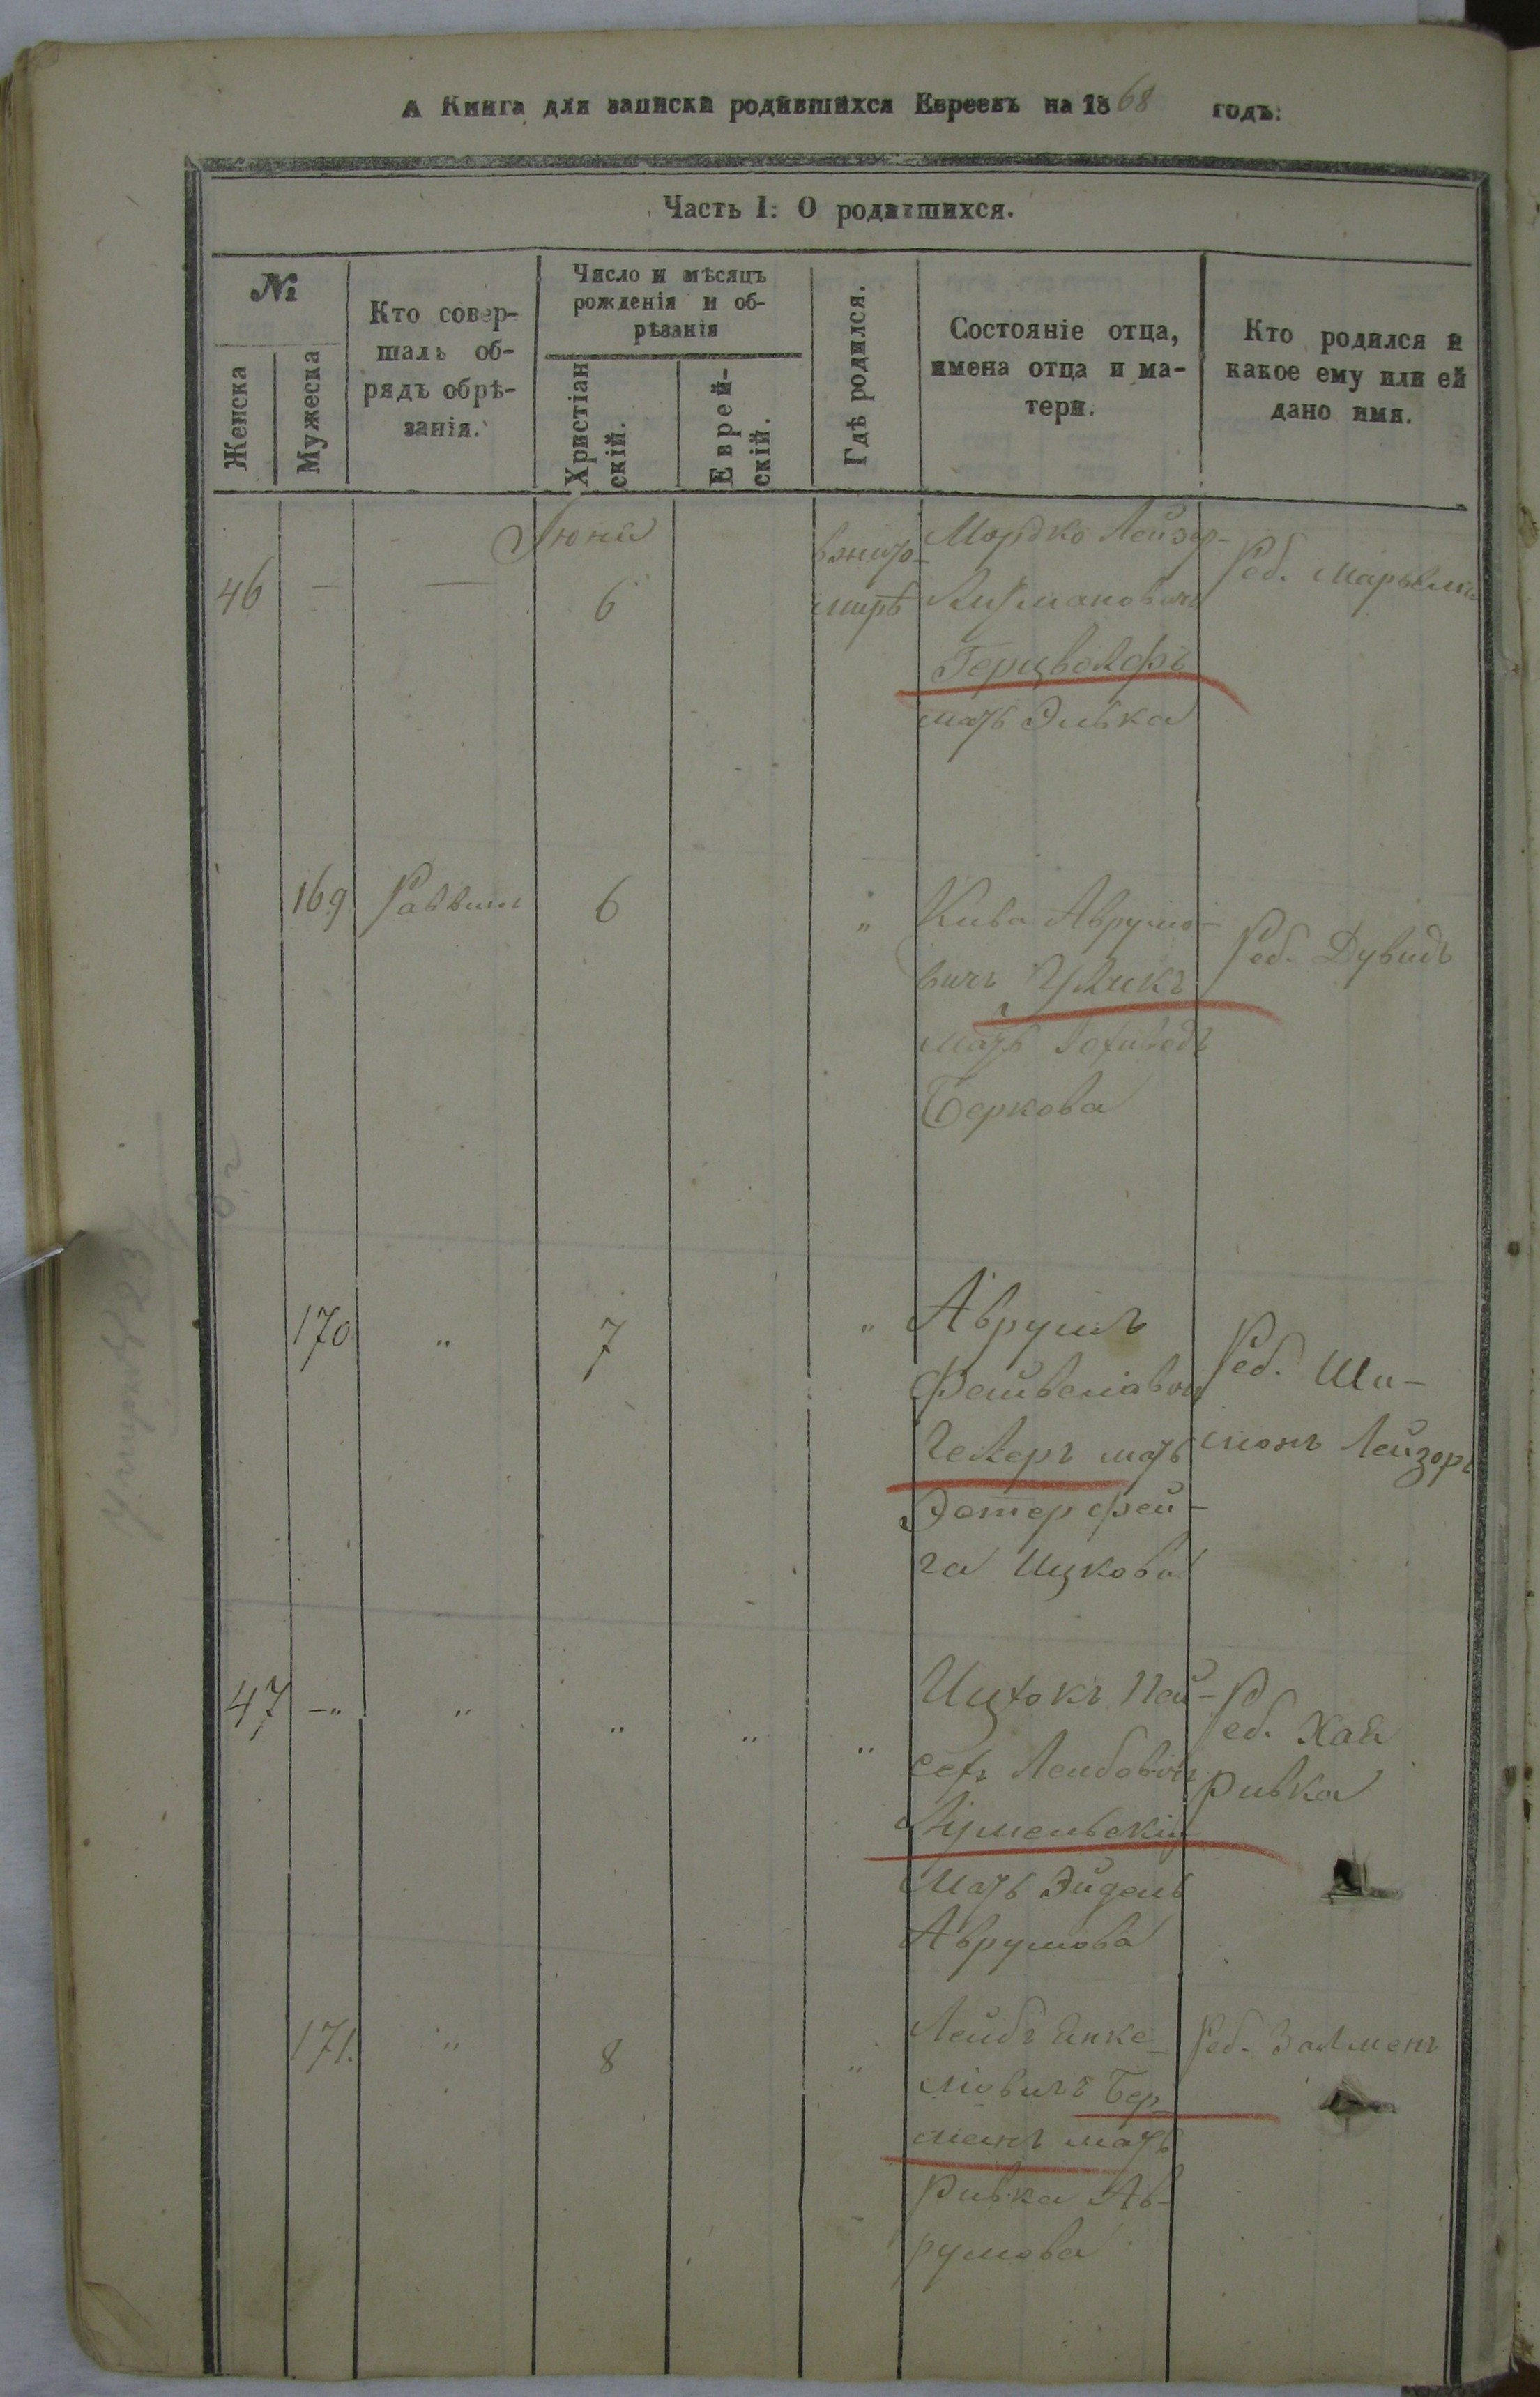 А Книга для записки родившихся Евреевъ на 1868 годъ:
Часть I: О родившихся.
№
Женска
Мужеска
Кто совер-
шалъ об-
рядъ обрѣ-
занія.
Число и мѣсяцъ
рожденія и об-
рѣзанія
Христіан
скій.
Еврей-
скій.
Гдѣ родился.
Состояніе отца,
имена отца и ма-
тери.
Кто родился и
какое ему или ей
дано имя.
Іюня
46 — — 6
вжито-
мирѣ
Мордко Лейзер-
Герцвольфъ
мать Элька
Реб. Марьемъ
169 Раввинъ 6 "
Кива Аврумо-
вичъ Уликъ
мать
Беркова
Реб. Дувидъ
170 " 7 "
Аврумъ
Фейвеліович
Гелеръ мать
Эстер Фей-
га Ицкова
Реб. Ши-
монъ Лейзоръ
47 —" " " " "
Ицхокъ Пей-
сехъ Лейбович
мать Эйдель
Аврумова
Реб. Хая
Ривка
171. " 8 "
Лейбъ Янке-
ліовичъ Бер-
менъ мать
Ривка Ав-
румова
Реб. Залменъ